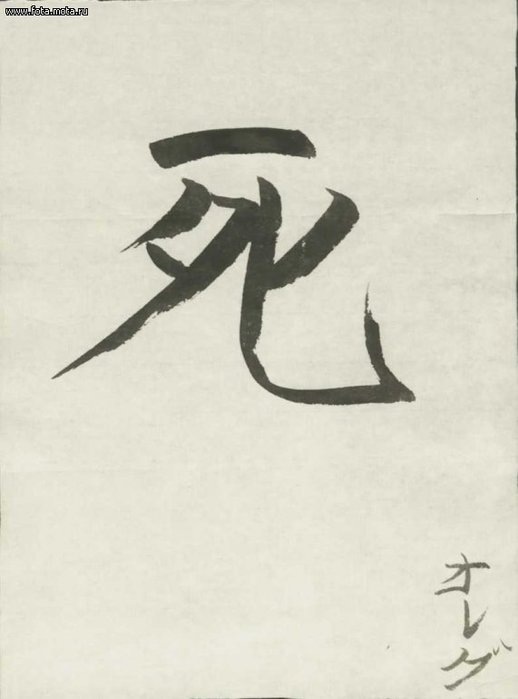 www.fota.mota.ru
死
オレグ